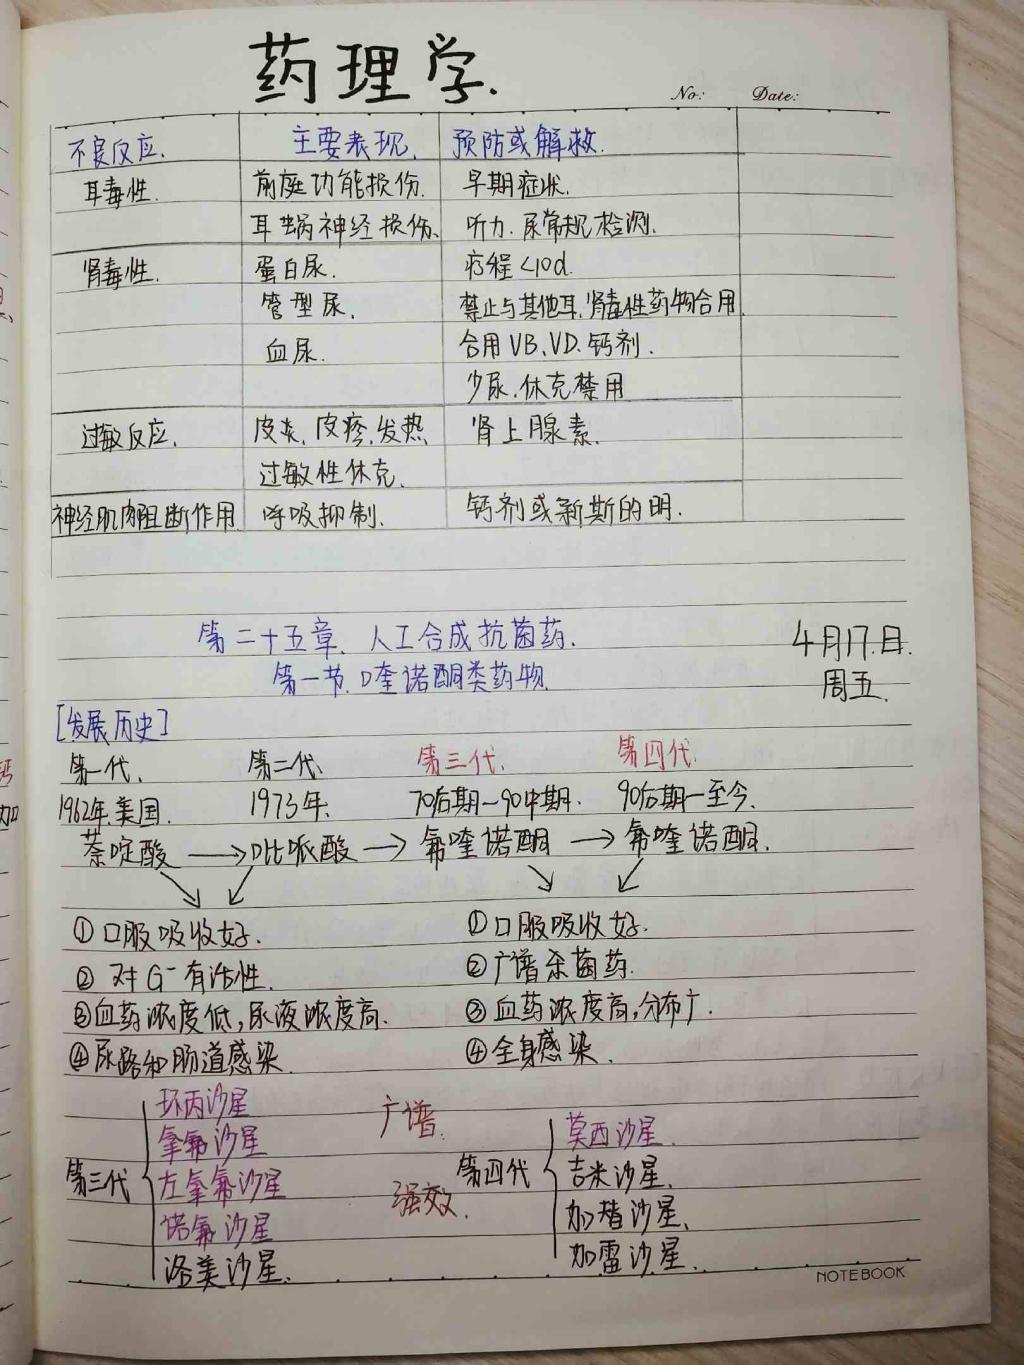 药理学.
No: Date:
不良反应. 主要表现. 预防或解救.
耳毒性. 前庭功能损伤. 早期症状.
耳蜗神经损伤. 听力.尿常规检测.
肾毒性. 蛋白尿. 疗程<10d.
管型尿. 禁止与其他耳.肾毒性药物合用
血尿. 合用VB、VD.钙剂.
少尿.休克禁用
过敏反应. 皮炎、皮疹.发热 肾上腺素.
过敏性休克.
神经肌肉阻断作用 呼吸抑制. 钙剂或新斯的明.
第二十五章.人工合成抗菌药. 4月17.日.
第一节.喹诺酮类药物. 周五.
[发展历史]
第一代、 第二代、 第三代. 第四代.
1962年.美国. 1973年. 70后期—90中期. 90后期—至今.
萘啶酸 → 吡哌酸 → 氟喹诺酮 → 氟喹诺酮.
①口服吸收好. ①口服吸收好.
② 对G⁻有活性. ②广谱杀菌药.
③血药浓度低,尿液浓度高. ③血药浓度高,分布广.
④尿路和肠道感染. ④全身感染.
环丙沙星 广谱. 莫西沙星.
氧氟沙星 吉米沙星.
第三代 左氧氟沙星 强效. 第四代
诺氟沙星 加替沙星、
洛美沙星. 加雷沙星.
NOTEBOOK